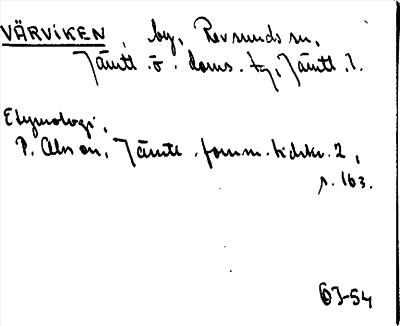 VÄRVIKEN, by, Revsunds sn,
Jämtl. ö. doms. tg, Jämtl. l.
Etymologi,
P. Olsson, Jämtl. fornm. tidskr. 2,
s. 163.
63-54